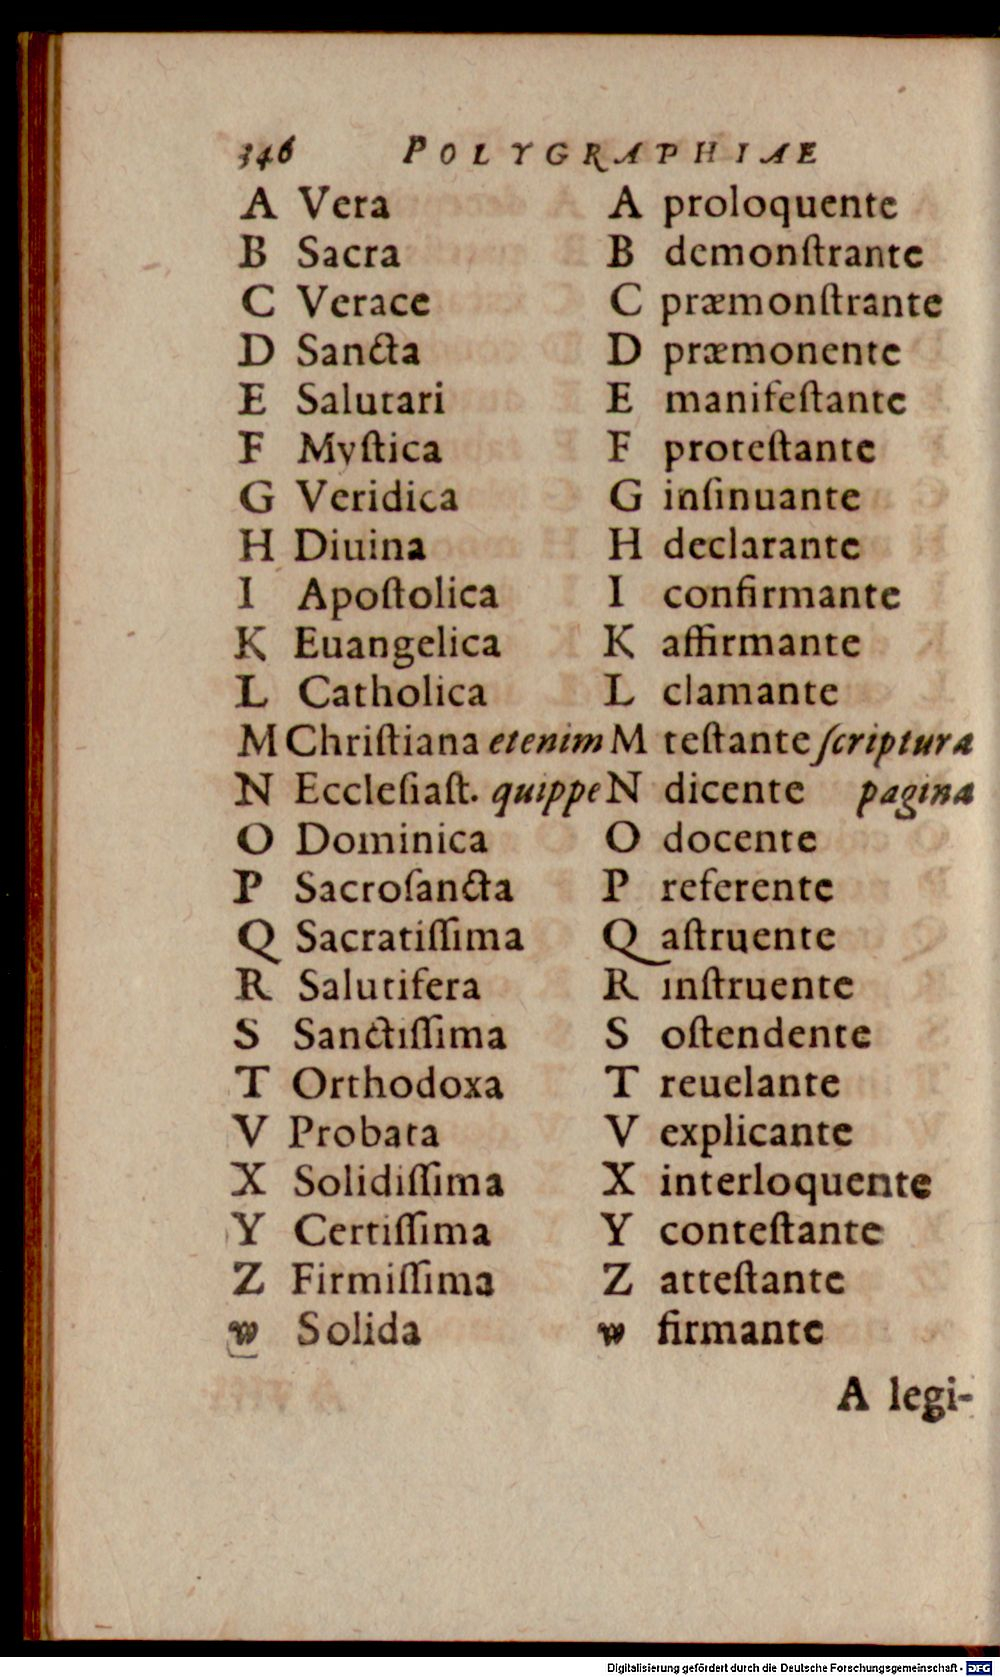 346 POLYGRAPHIAE
A Vera A proloquente
B Sacra B demonſtrante
C Verace C præmonſtrante
D Sancta D præmonente
E Salutari E manifeſtante
F Myſtica F proteſtante
G Veridica G inſinuante
H Diuina H declarante
I Apoſtolica I confirmante
K Euangelica K affirmante
L Catholica L clamante
M Chriſtiana etenim M teſtante ſcriptura
N Eccleſiaſt. quippe N dicente pagina
O Dominica O docente
P Sacroſancta P referente
Q Sacratiſſima Q aſtruente
R Salutifera R inſtruente
S Sanctiſſima S oſtendente
T Orthodoxa T reuelante
V Probata V explicante
X Solidiſſima X interloquente
Y Certiſſima Y conteſtante
Z Firmiſſima Z atteſtante
w Solida w firmante
A legi-
Digitalisierung gefördert durch die Deutsche Forschungsgemeinschaft - DFG